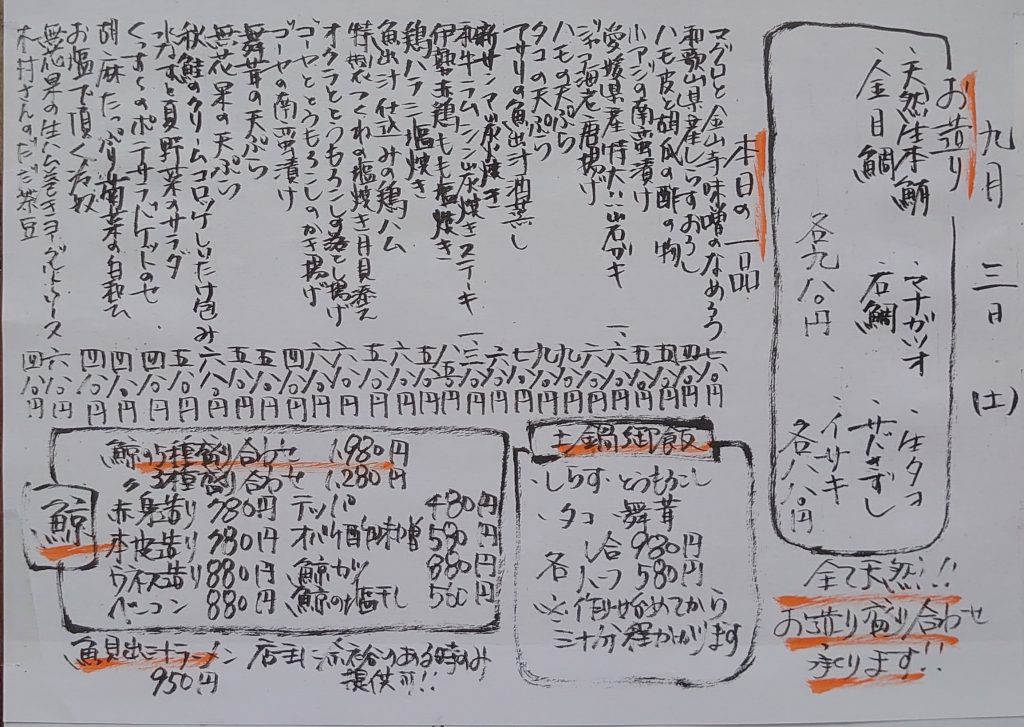 九月 三日 (土)
お造り
・天然生本鮪 ・マナガツオ ・生タコ
・金目鯛 ・石鯛 ・サドきずし
・イサキ
各九八〇円 各八八〇円
全て天然!!
お造り盛り合わせ
承ります!!
本日の一品
マグロと金山寺味噌のなめろう 七八〇円
和歌山県産しらすおろし 四八〇円
ハモ皮と胡瓜の酢の物 五八〇円
小アジの南蛮漬け 五八〇円
愛媛県産特大!!岩ガキ
ジャコ海老唐揚げ 六八〇円
ハモの天ぷら 九八〇円
タコの天ぷら 九八〇円
アサリの魚出汁酒蒸し 七八〇円
新サンマ炭焼き
和牛ラムシン炭焼きステーキ
伊勢赤鶏もも塩焼き 八八〇円
鶏ハラミ塩焼き 五八〇円
魚出汁仕込みの鶏ハム 六八〇円
特製つくねの塩焼き月見添え 五八〇円
オクラととうもろこしの落とし揚げ 六八〇円
ゴーヤととうもろこしのかき揚げ 六八〇円
ゴーヤの南蛮漬け 四八〇円
舞茸の天ぷら 五八〇円
無花果の天ぷら 五八〇円
秋鮭のクリームコロッケしいたけ包み 六八〇円
水なすと夏野菜のサラダ 五八〇円
くっすくのポテサラバゲットのせ 四八〇円
胡麻たっぷり青菜の白和え 四八〇円
お塩で頂く冷奴 四八〇円
無花果の生ハム巻きヨーグルトソース 六八〇円
木村さんのだだ茶豆 四八〇円
土鍋御飯
・しらす・とうもろこし
・タコ ・舞茸
各 一合 980円
ハーフ 580円
※作り始めてから
三十分程かかります
鯨
鯨の5種盛り合わせ 1,980円
〃 3種盛り合わせ 1,280円
赤身造り 980円 テッパ 480円
本皮造り 980円 オバケ酢味噌 580円
ウネス造り 880円 鯨カツ 880円
ベーコン 880円 鯨の塩干し 580円
魚貝出汁ラーメン 店主に余裕のある時のみ
950円 提供可!!